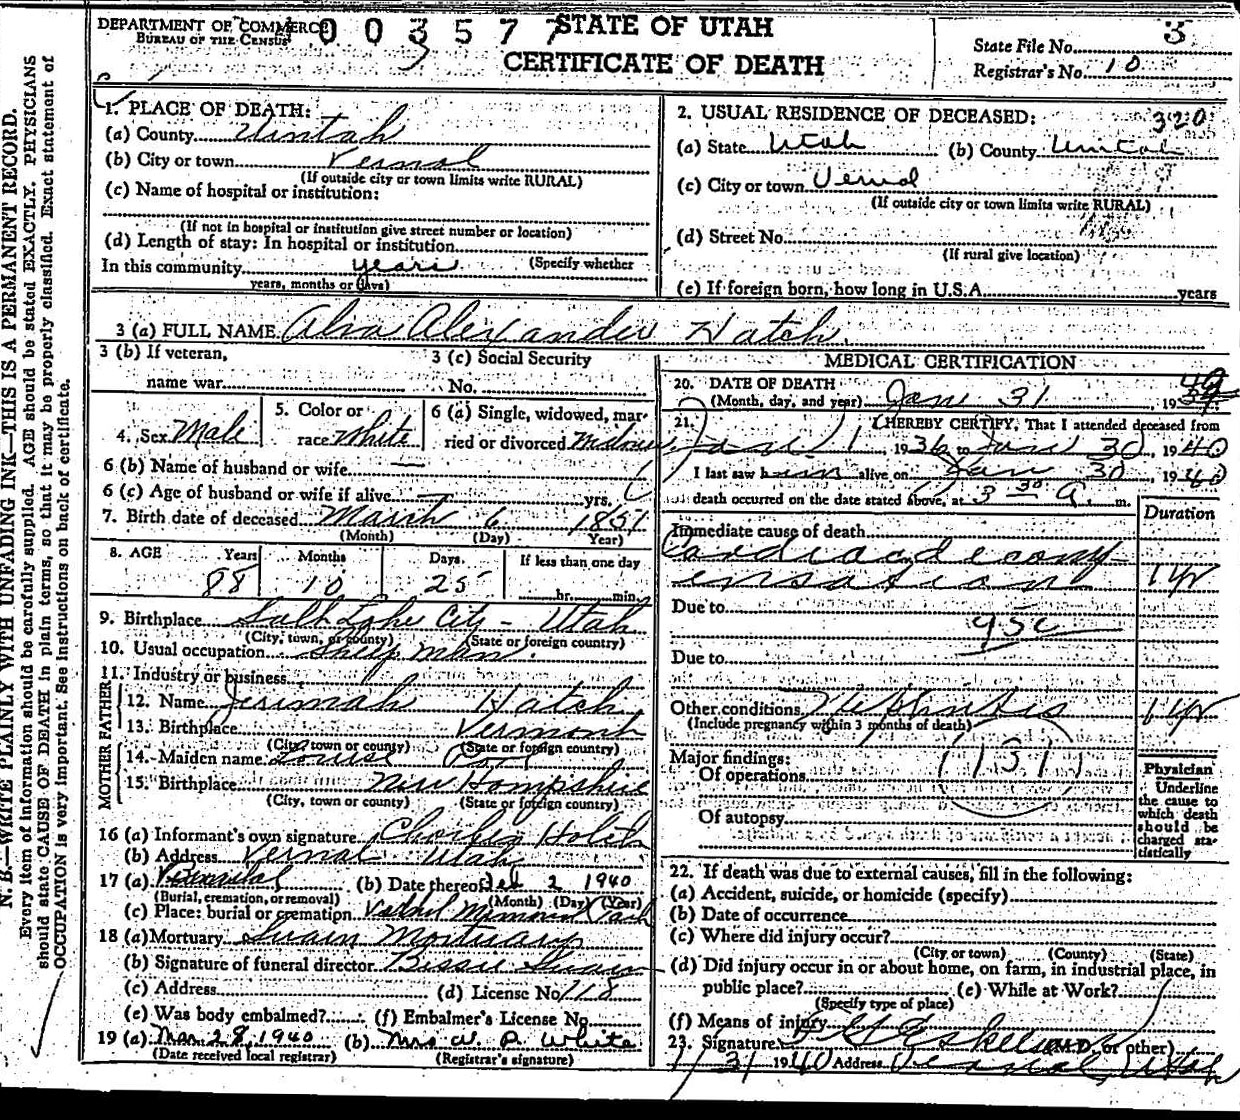 DEPARTMENT OF COMMERCE
BUREAU OF THE CENSUS
0 0 3 5 7 7
STATE OF UTAH
CERTIFICATE OF DEATH
State File No. 3
Registrar's No. 10
N. B.—WRITE PLAINLY WITH UNFADING INK—THIS IS A PERMANENT RECORD.
Every item of information should be carefully supplied. AGE should be stated EXACTLY. PHYSICIANS
should state CAUSE OF DEATH in plain terms, so that it may be properly classified. Exact statement of
OCCUPATION is very important. See instructions on back of certificate.
1. PLACE OF DEATH:
(a) County Uintah
(b) City or town Vernal
(If outside city or town limits write RURAL)
(c) Name of hospital or institution:
(If not in hospital or institution give street number or location)
(d) Length of stay: In hospital or institution
In this community years (Specify whether
years, months or days)
2. USUAL RESIDENCE OF DECEASED: 320
(a) State Utah (b) County Uintah
(c) City or town Vernal
(If outside city or town limits write RURAL)
(d) Street No.
(If rural give location)
(e) If foreign born, how long in U.S.A. years
3 (a) FULL NAME Alva Alexander Hatch
3 (b) If veteran,
name war
3 (c) Social Security
No.
4. Sex Male
5. Color or
race White
6 (a) Single, widowed, mar-
ried or divorced Widower
6 (b) Name of husband or wife —
6 (c) Age of husband or wife if alive — yrs.
7. Birth date of deceased March 6 1851
(Month) (Day) Year)
8. AGE Years Months Days If less than one day
88 10 25 hr. min.
9. Birthplace Salt Lake City - Utah
(City, town, or county) (State or foreign country)
10. Usual occupation Sheep man.
11. Industry or business
FATHER
12. Name Jerimah Hatch
13. Birthplace Vermont
(City, town or county) (State or foreign country)
MOTHER
14. Maiden name Louise
15. Birthplace New Hampshire
(City, town or county) (State or foreign country)
16 (a) Informant's own signature Hatch
(b) Address Vernal Utah
17 (a) Burial (b) Date thereof Feb 2 1940
(Burial, cremation, or removal) (Month) (Day) (Year)
(c) Place: burial or cremation Vernal Memorial Park
18 (a) Mortuary Swain Mortuary
(b) Signature of funeral director Bessie Swain
(c) Address (d) License No. 118
(e) Was body embalmed? (f) Embalmer's License No.
19 (a) Mar. 28, 1940 (b) Mrs W. P. White
(Date received local registrar) (Registrar's signature)
MEDICAL CERTIFICATION
20. DATE OF DEATH
(Month, day, and year) Jan 31 1940
21. I HEREBY CERTIFY, That I attended deceased from
Jan 1, 1936 to Jan 30, 1940
I last saw him alive on Jan 30, 1940
death occurred on the date stated above, at 3 30 A. m.
Duration
Immediate cause of death
Cardiac decomp
ensation 1 yr
Due to
95c
Due to
Other conditions Nephritis 1 yr
(Include pregnancy within 3 months of death)
131
Major findings:
Of operations
Of autopsy
Physician
Underline
the cause to
which death
should be
charged sta-
tistically
22. If death was due to external causes, fill in the following:
(a) Accident, suicide, or homicide (specify)
(b) Date of occurrence
(c) Where did injury occur?
(City or town) (County) (State)
(d) Did injury occur in or about home, on farm, in industrial place, in
public place? (e) While at Work?
(Specify type of place)
(f) Means of injury
23. Signature Eskelson (M.D. or other)
1/31 1940 Address Vernal, Utah